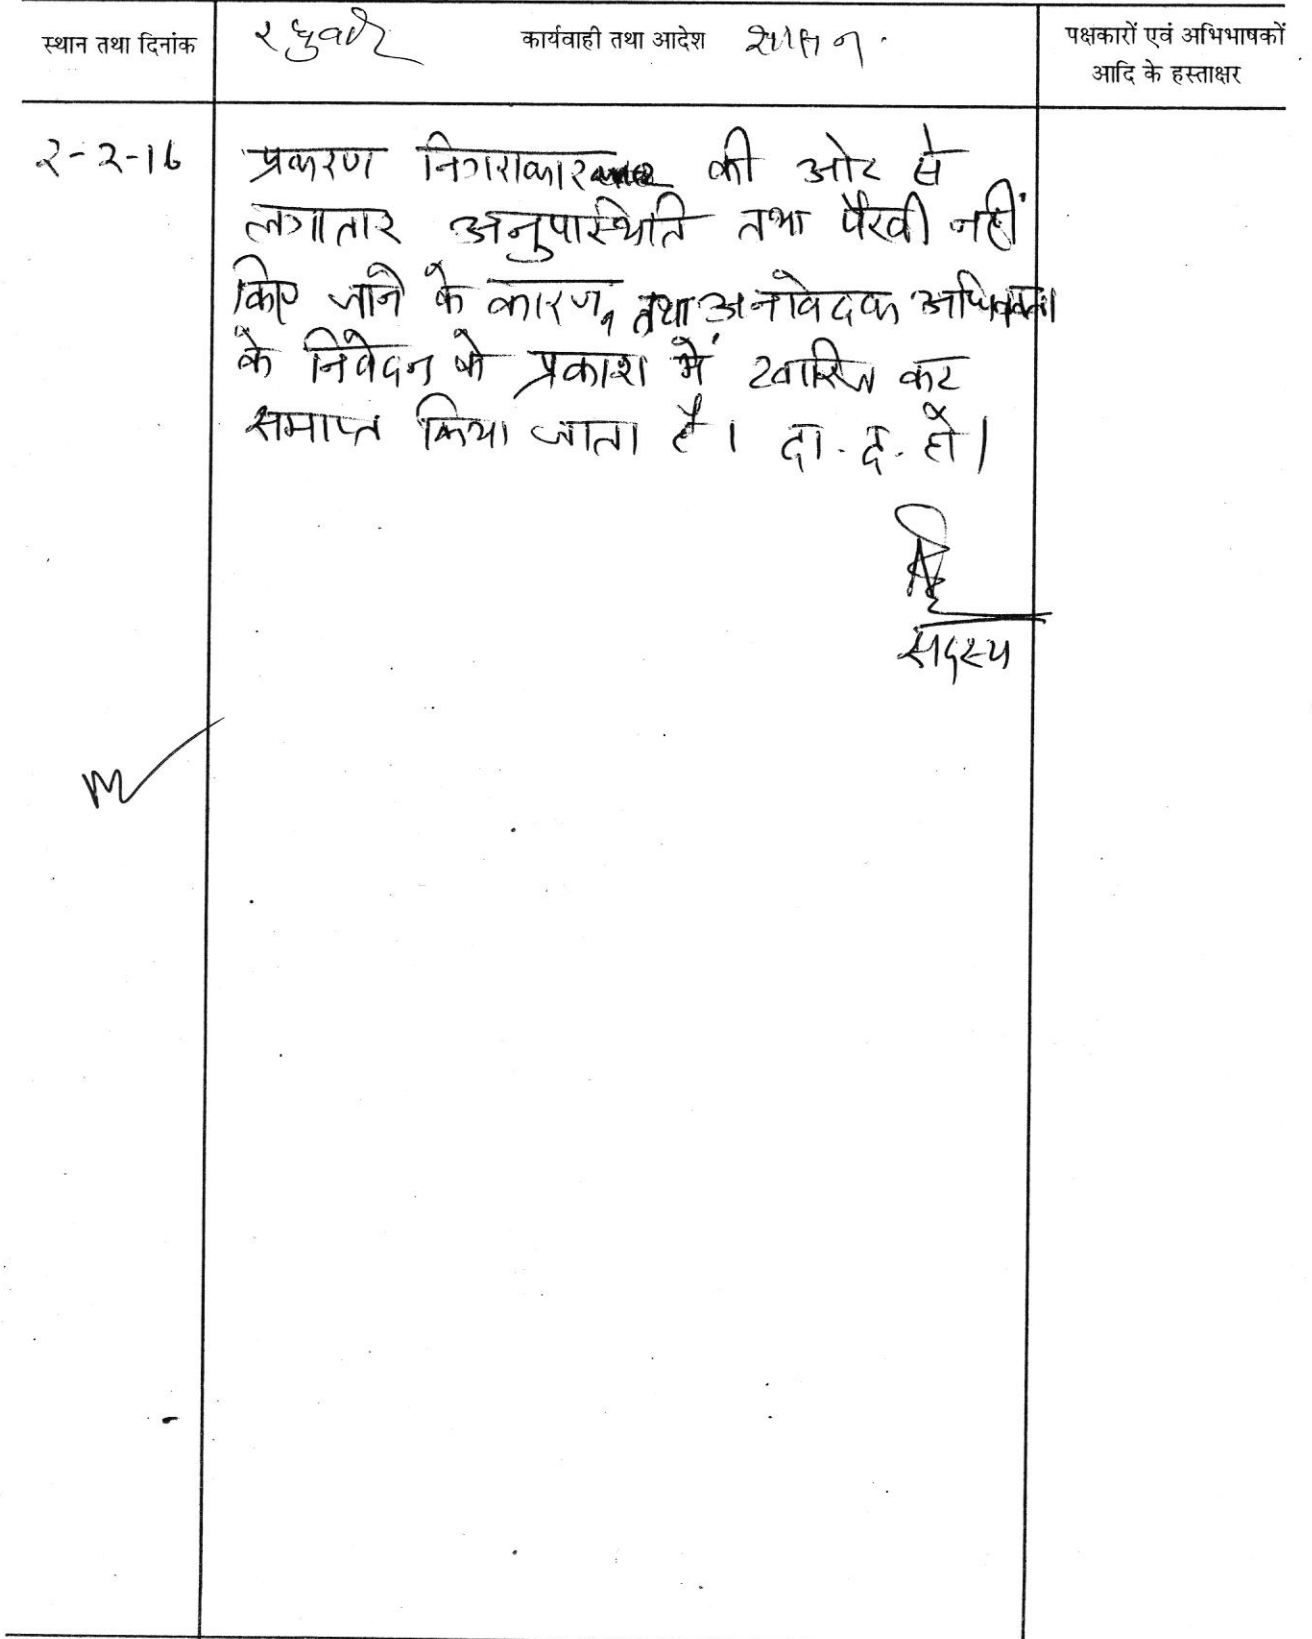 स्थान तथा दिनांक रघुवीर कार्यवाही तथा आदेश शासन पक्षकारों एवं अभिभाषकों
आदि के हस्ताक्षर
२-२-16 प्रकरण निगराकार की ओर से
लगातार अनुपस्थिति तथा पैरवी नहीं
किए जाने के कारण, तथा अनावेदक अधिवक्ता
के निवेदन के प्रकाश में खारिज कर
समाप्त किया जाता है। दा. द. हो।
सदस्य